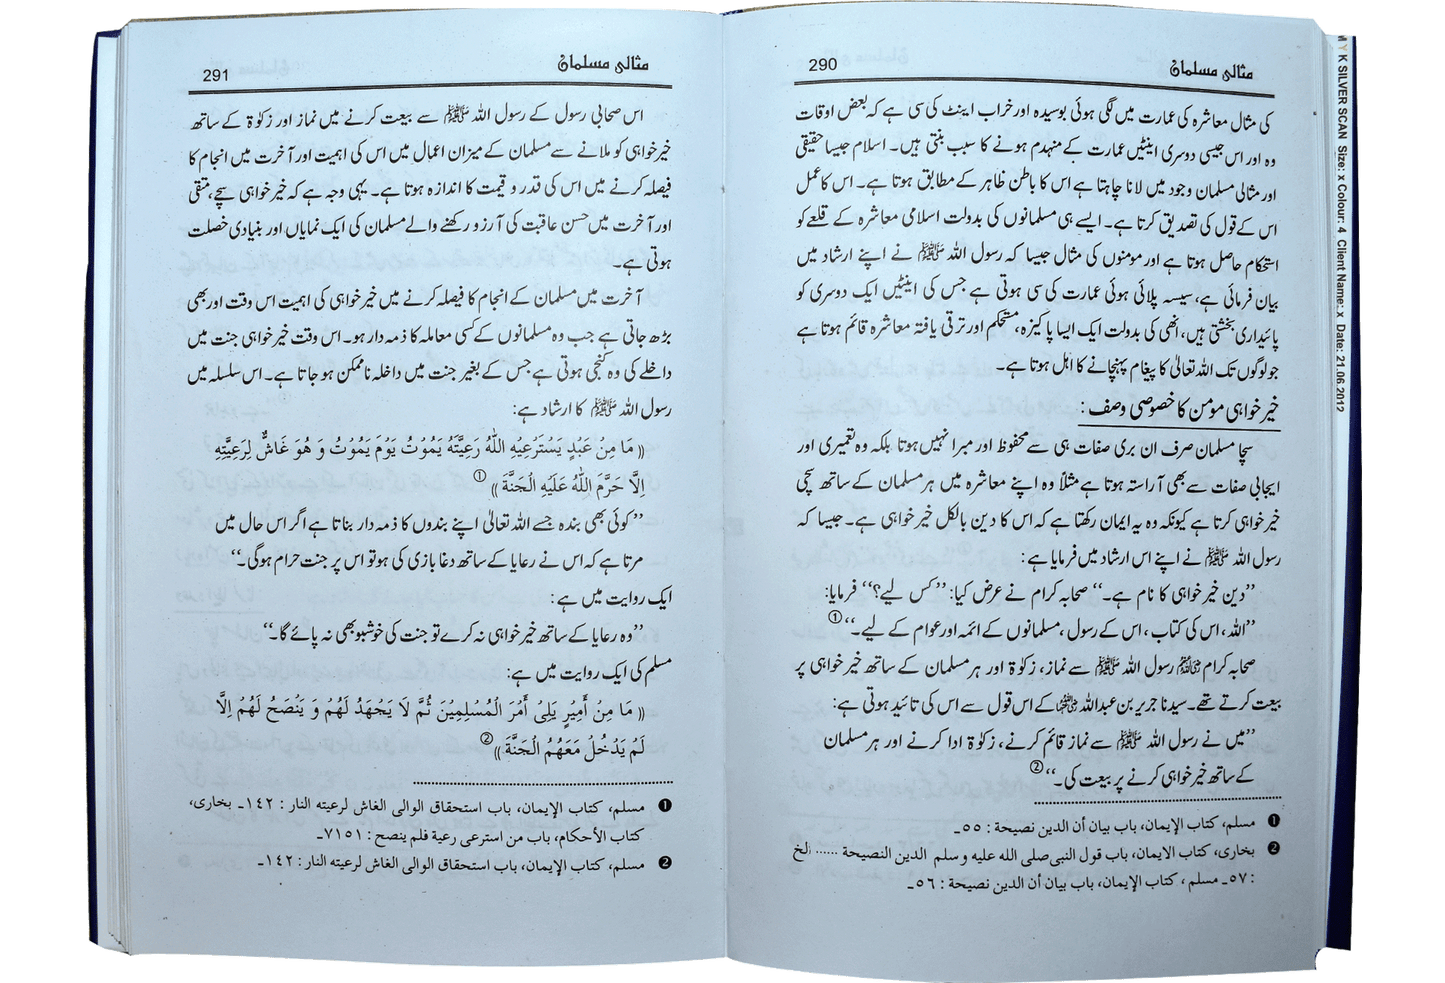 290
مثالی مسلمان
کی مثال معاشرہ کی عمارت میں لگی ہوئی بوسیدہ اور خراب اینٹ کی سی ہے کہ بعض اوقات
وہ اور اس جیسی دوسری اینٹیں عمارت کے منہدم ہونے کا سبب بنتی ہیں۔ اسلام جیسا حقیقی
اور مثالی مسلمان وجود میں لانا چاہتا ہے اس کا باطن ظاہر کے مطابق ہوتا ہے۔ اس کا عمل
اس کے قول کی تصدیق کرتا ہے۔ ایسے ہی مسلمانوں کی بدولت اسلامی معاشرہ کے قلعے کو
استحکام حاصل ہوتا ہے اور مومنوں کی مثال جیسا کہ رسول اللہ ﷺ نے اپنے ارشاد میں
بیان فرمائی ہے، سیسہ پلائی ہوئی عمارت کی سی ہوتی ہے جس کی اینٹیں ایک دوسری کو
پائیداری بخشتی ہیں، انھی کی بدولت ایک ایسا پاکیزہ، مستحکم اور ترقی یافتہ معاشرہ قائم ہوتا ہے
جو لوگوں تک اللہ تعالیٰ کا پیغام پہنچانے کا اہل ہوتا ہے۔
خیر خواہی مومن کا خصوصی وصف:
سچا مسلمان صرف ان بری صفات ہی سے محفوظ اور مبرا نہیں ہوتا بلکہ وہ تعمیری اور
ایجابی صفات سے بھی آراستہ ہوتا ہے مثلاً وہ اپنے معاشرہ میں ہر مسلمان کے ساتھ سچی
خیر خواہی کرتا ہے کیونکہ وہ یہ ایمان رکھتا ہے کہ اس کا دین بالکل خیر خواہی ہے۔ جیسا کہ
رسول اللہ ﷺ نے اپنے اس ارشاد میں فرمایا ہے:
”دین خیر خواہی کا نام ہے۔“ صحابہ کرام نے عرض کیا: ”کس لیے؟“ فرمایا:
”اللہ، اس کی کتاب، اس کے رسول، مسلمانوں کے ائمہ اور عوام کے لیے۔“①
صحابہ کرام رسول اللہ ﷺ سے نماز، زکوٰۃ اور ہر مسلمان کے ساتھ خیر خواہی پر
بیعت کرتے تھے۔ سیدنا جریر بن عبداللہ کے اس قول سے اس کی تائید ہوتی ہے:
”میں نے رسول اللہ ﷺ سے نماز قائم کرنے، زکوٰۃ ادا کرنے اور ہر مسلمان
کے ساتھ خیر خواہی کرنے پر بیعت کی۔“②
❶ مسلم، کتاب الإیمان، باب بیان أن الدین نصیحة : ٥٥۔
❷ بخاری، کتاب الایمان، باب قول النبی صلی الله علیه و سلم الدین النصیحة ...... الخ
: ٥٧۔ مسلم ، کتاب الإیمان، باب بیان أن الدین نصیحة : ٥٦۔
291
مثالی مسلمان
اس صحابی رسول کے رسول اللہ ﷺ سے بیعت کرنے میں نماز اور زکوٰۃ کے ساتھ
خیر خواہی کو ملانے سے مسلمان کے میزان اعمال میں اس کی اہمیت اور آخرت میں انجام کا
فیصلہ کرنے میں اس کی قدر و قیمت کا اندازہ ہوتا ہے۔ یہی وجہ ہے کہ خیر خواہی سچے، متقی
اور آخرت میں حسن عاقبت کی آرزو رکھنے والے مسلمان کی ایک نمایاں اور بنیادی خصلت
ہوتی ہے۔
آخرت میں مسلمان کے انجام کا فیصلہ کرنے میں خیر خواہی کی اہمیت اس وقت اور بھی
بڑھ جاتی ہے جب وہ مسلمانوں کے کسی معاملہ کا ذمہ دار ہو۔ اس وقت خیر خواہی جنت میں
داخلے کی وہ کنجی ہوتی ہے جس کے بغیر جنت میں داخلہ ناممکن ہو جاتا ہے۔ اس سلسلہ میں
رسول اللہ ﷺ کا ارشاد ہے:
(( مَا مِنْ عَبْدٍ يَسْتَرْعِيْهِ اللّٰهُ رَعِيَّتَهُ يَمُوْتُ يَوْمَ يَمُوْتُ وَ هُوَ غَاشٌّ لِرَعِيَّتِهِ
اِلَّا حَرَّمَ اللّٰهُ عَلَيْهِ الْجَنَّةَ ))①
”کوئی بھی بندہ جسے اللہ تعالیٰ اپنے بندوں کا ذمہ دار بناتا ہے اگر اس حال میں
مرتا ہے کہ اس نے رعایا کے ساتھ دغا بازی کی ہو تو اس پر جنت حرام ہوگی۔“
ایک روایت میں ہے:
”وہ رعایا کے ساتھ خیر خواہی نہ کرے تو جنت کی خوشبو بھی نہ پائے گا۔“
مسلم کی ایک روایت میں ہے:
(( مَا مِنْ أَمِيْرٍ يَلِىْ أَمْرَ الْمُسْلِمِيْنَ ثُمَّ لَا يَجْهَدُ لَهُمْ وَ يَنْصَحُ لَهُمْ اِلَّا
لَمْ يَدْخُلْ مَعَهُمُ الْجَنَّةَ ))②
❶ مسلم، کتاب الإیمان، باب استحقاق الوالی الغاش لرعیته النار : ١٤٢۔ بخاری،
کتاب الأحکام، باب من استرعی رعیة فلم ینصح : ٧١٥١۔
❷ مسلم، کتاب الإیمان، باب استحقاق الوالی الغاش لرعیته النار : ١٤٢۔
M Y K SILVER SCAN Size: x Colour: 4 Client Name: x Date: 21.06.2012